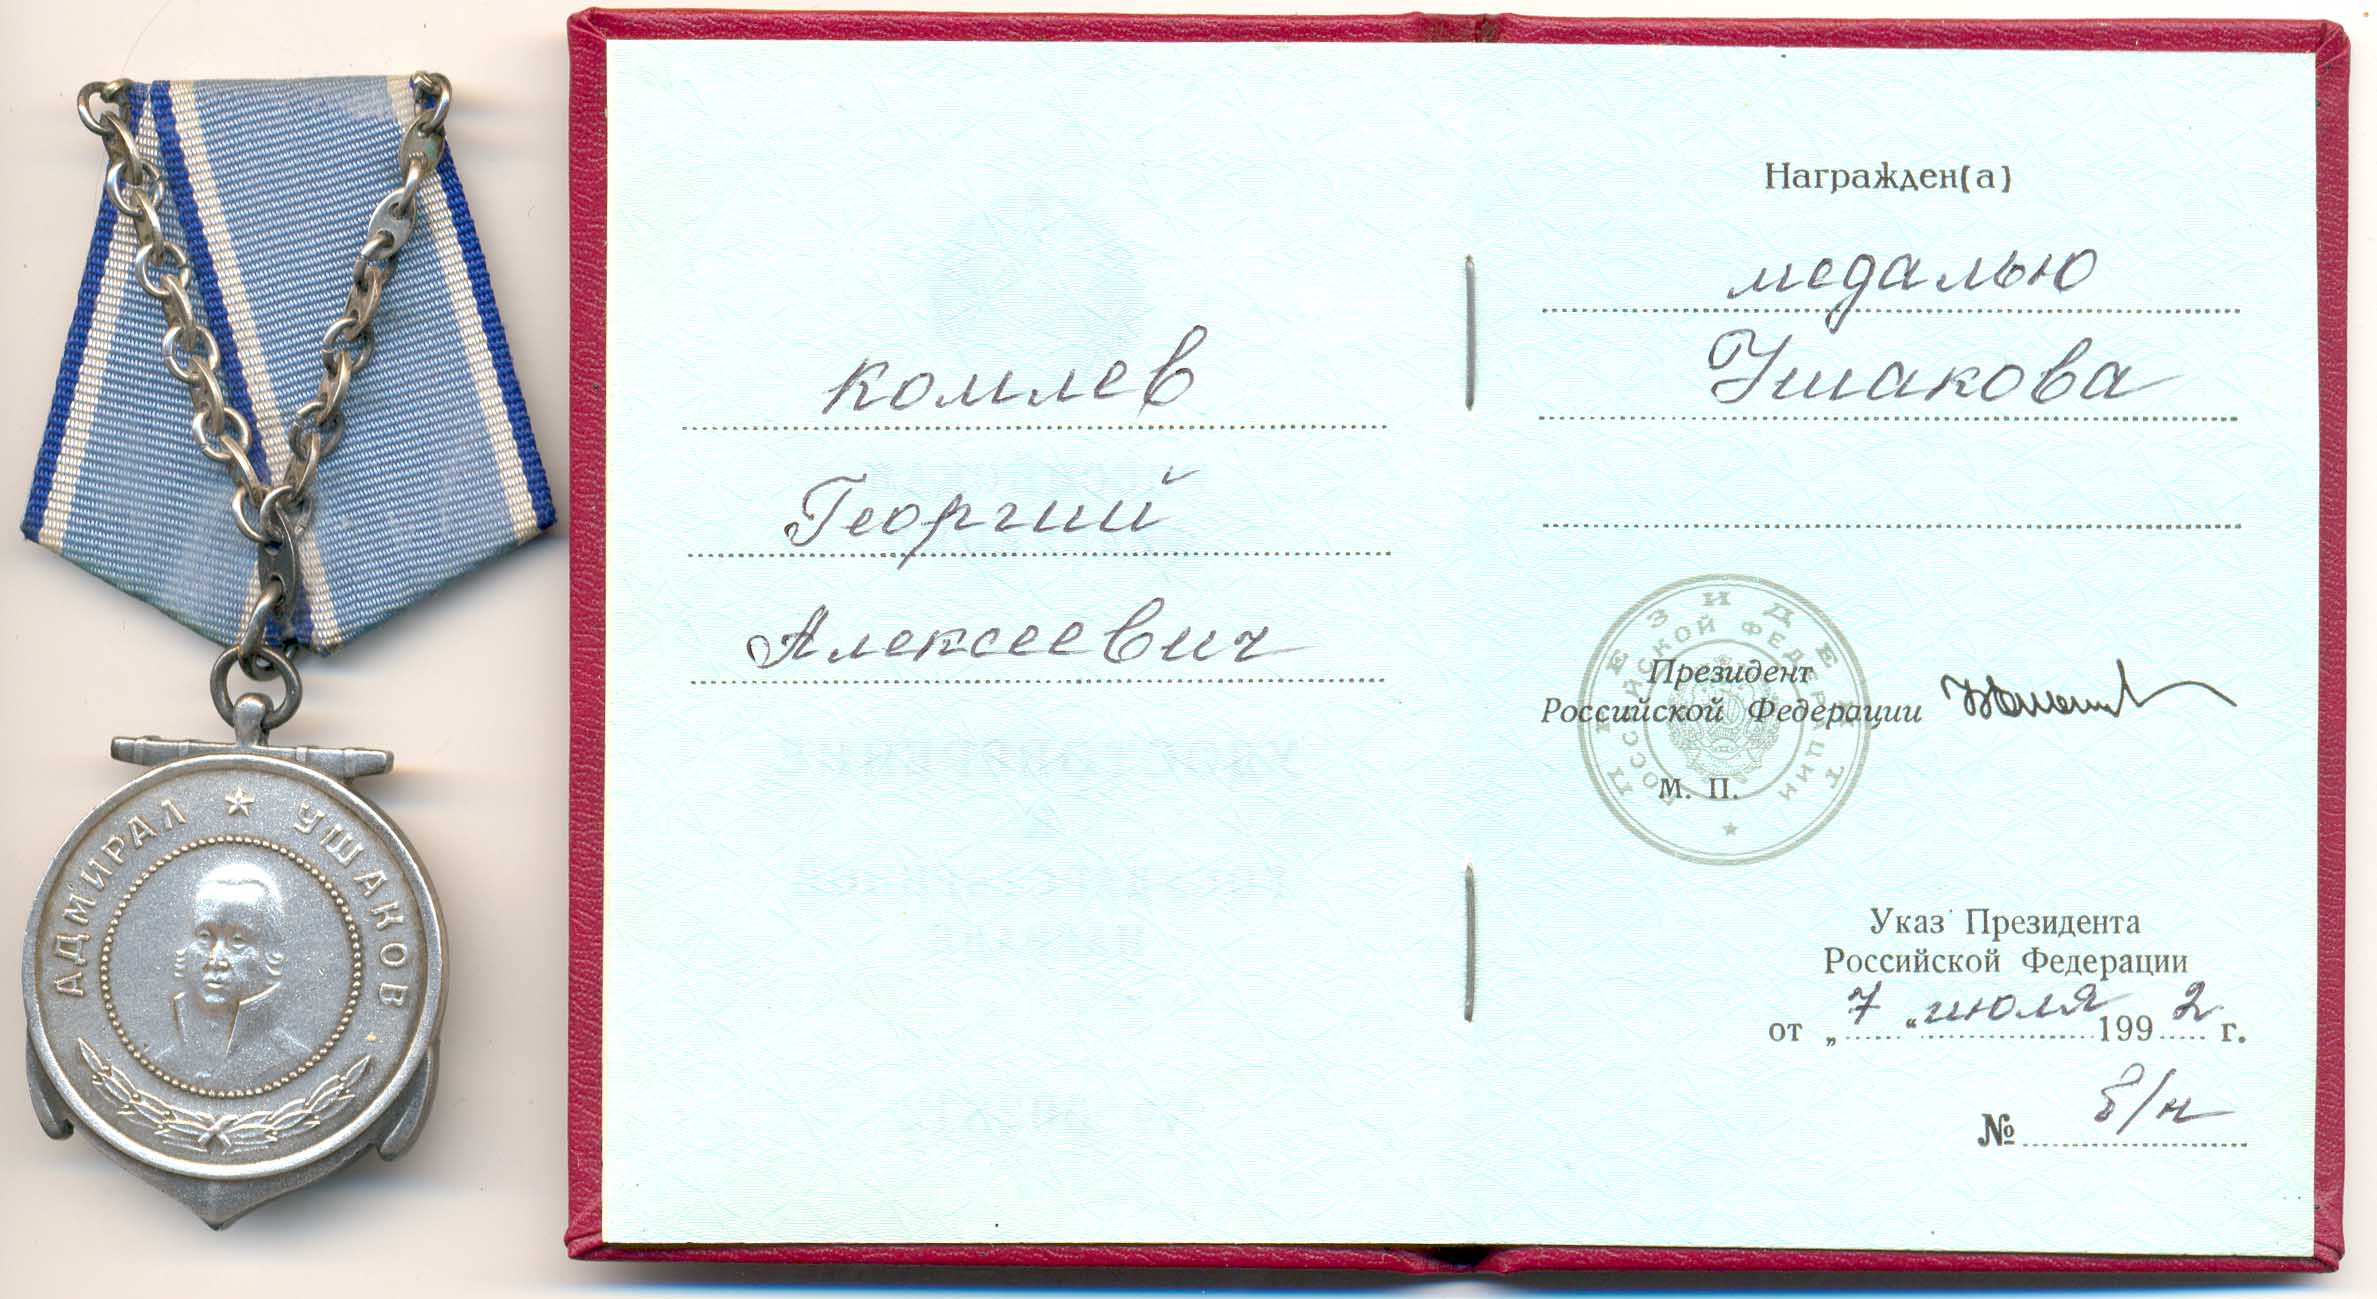 АДМИРАЛ ★ УШАКОВ
комлев
Георгий
Алексеевич
Награжден(а)
медалью
Ушакова
ПРЕЗИДЕНТ
РОССИЙСКОЙ ФЕДЕРАЦИИ
Президент
Российской Федерации
М. П.
Указ Президента
Российской Федерации
от „ 7 “ июля 1992 г.
№ б/н